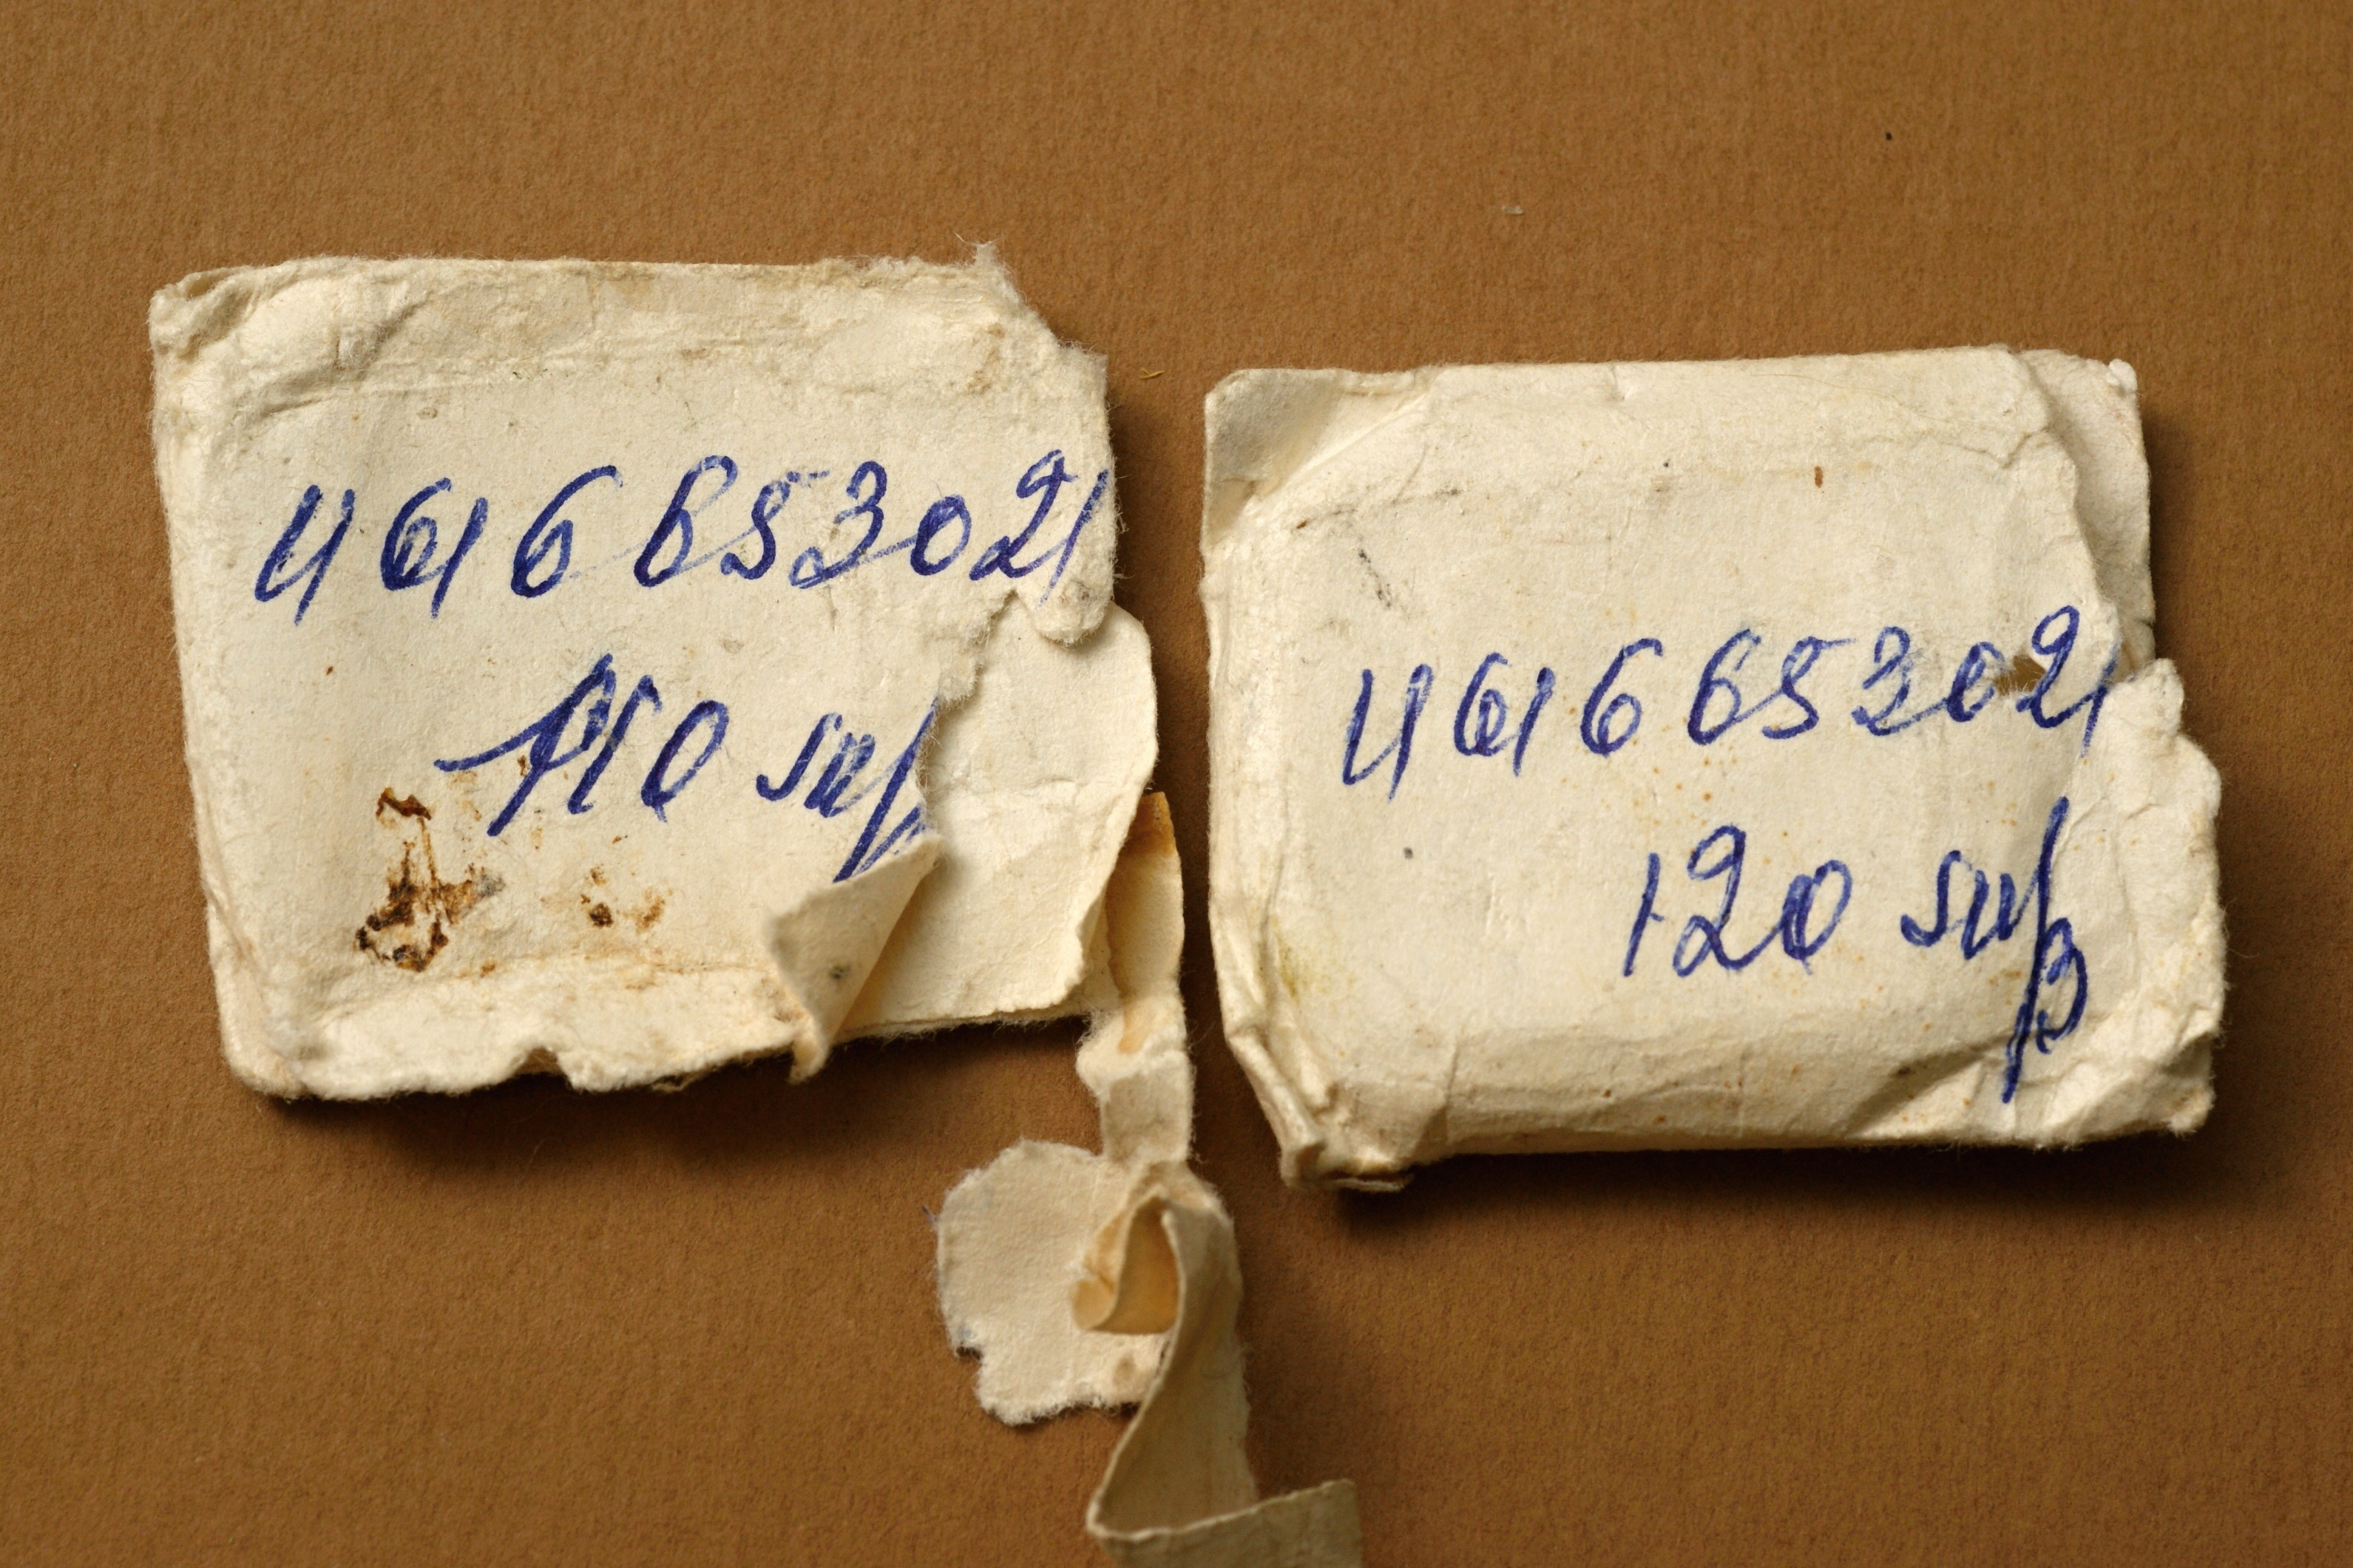 4616653021
110
4616653021
120